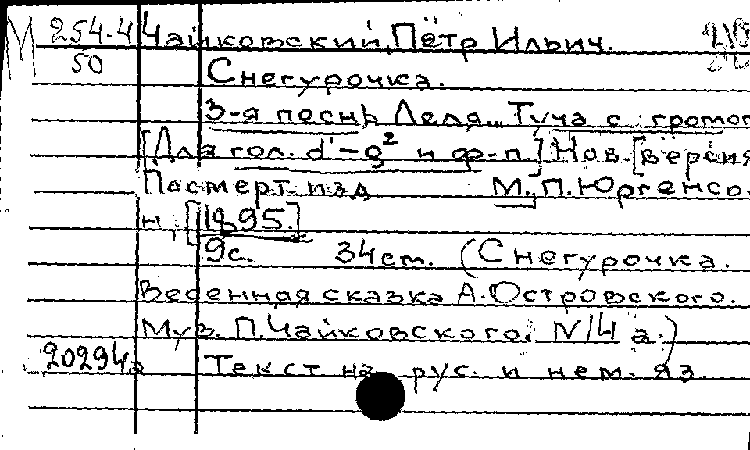 М 254-4 Чайковский, Пётр Ильич.
50 Снегурочка.
3-я песнь Леля „Туча с громом
[Для гол. d'–g² и ф-п.] Нов. [версия
Посмерт. изд М., П. Юргенсо
н, [1895.]
9с. 34см. (Снегурочка.
Весенная сказка А. Островского.
Муз. П. Чайковского, N/4 а.)
20294 Текст на рус. и нем. яз